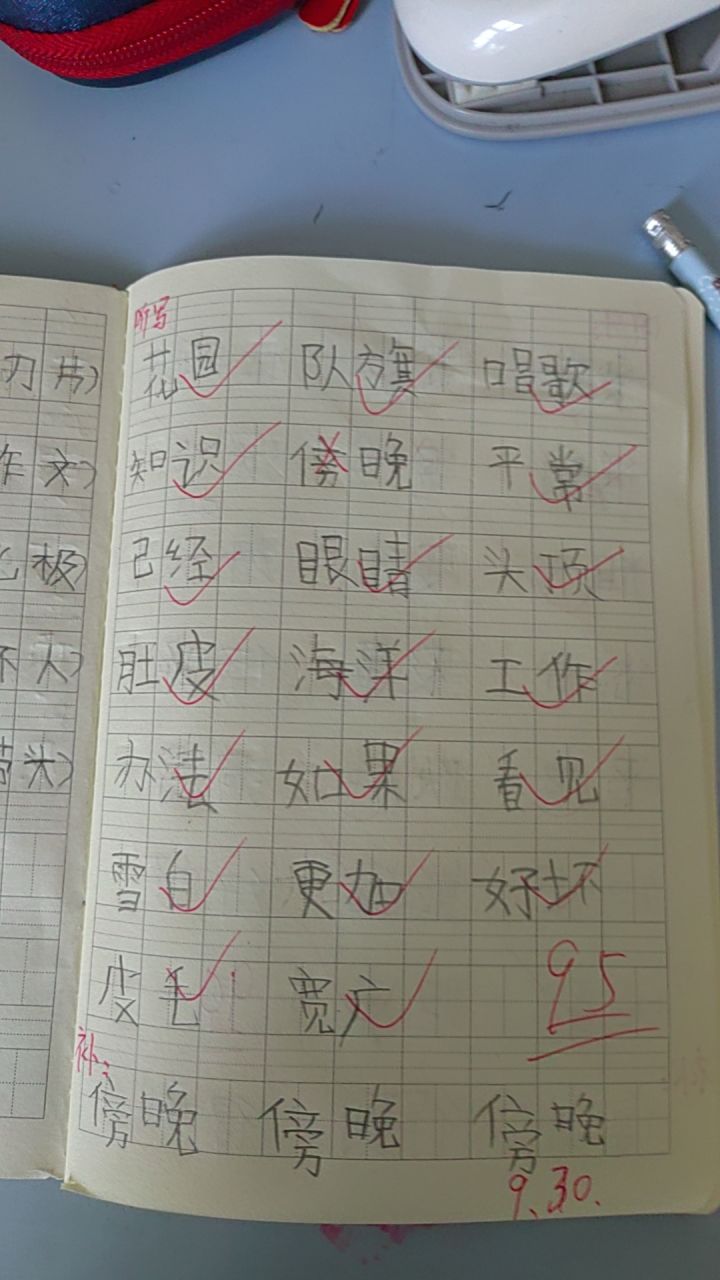 听写
花园 队旗 唱歌
知识 傍晚 平常
已经 眼睛 头顶
肚皮 海洋 工作
办法 如果 看见
雪白 更加 好坏
皮毛 宽广
95
补：
傍晚 傍晚 傍晚
9.30.
刃片)
作文)
极)
坏人)
头)